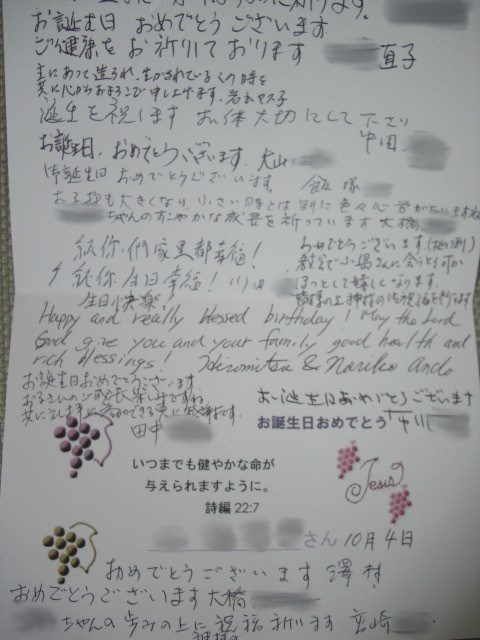 お誕生日 おめでとうございます
ご健康をお祈りております 直子
主にあって造られ、生かされている
共に心からおよろこび申し上げます。
誕生を祝します お体大切にして下さい
中田
お誕生日、おめでとうございます。大山
御誕生日 おめでとうございます。 飯塚
お子様も大きくなり、小さい時とは別に色々心苦が
ちゃんのすこやかな成長を祈っています 大橋
祝你们家里都幸福!
祝你生日幸福! 川口
生日快楽!
おめでとうございます。
教会で小島さんに会うと
ほっとして嬉しくなります。
Happy and really blessed birthday! May the Lord
God give you and your family good health and
rich blessings! Hiromitsu & Nariko Ando
お誕生日おめでとうございます
お子さんのご成長楽しみですね
田中
お誕生日おめでとうございます
お誕生日おめでとう
いつまでも健やかな命が
与えられますように。
詩編 22:7
Jesus
さん 10月4日
おめでとうございます 澤村
おめでとうございます 大橋
ちゃんの歩みの上に祝福祈ります 宮崎